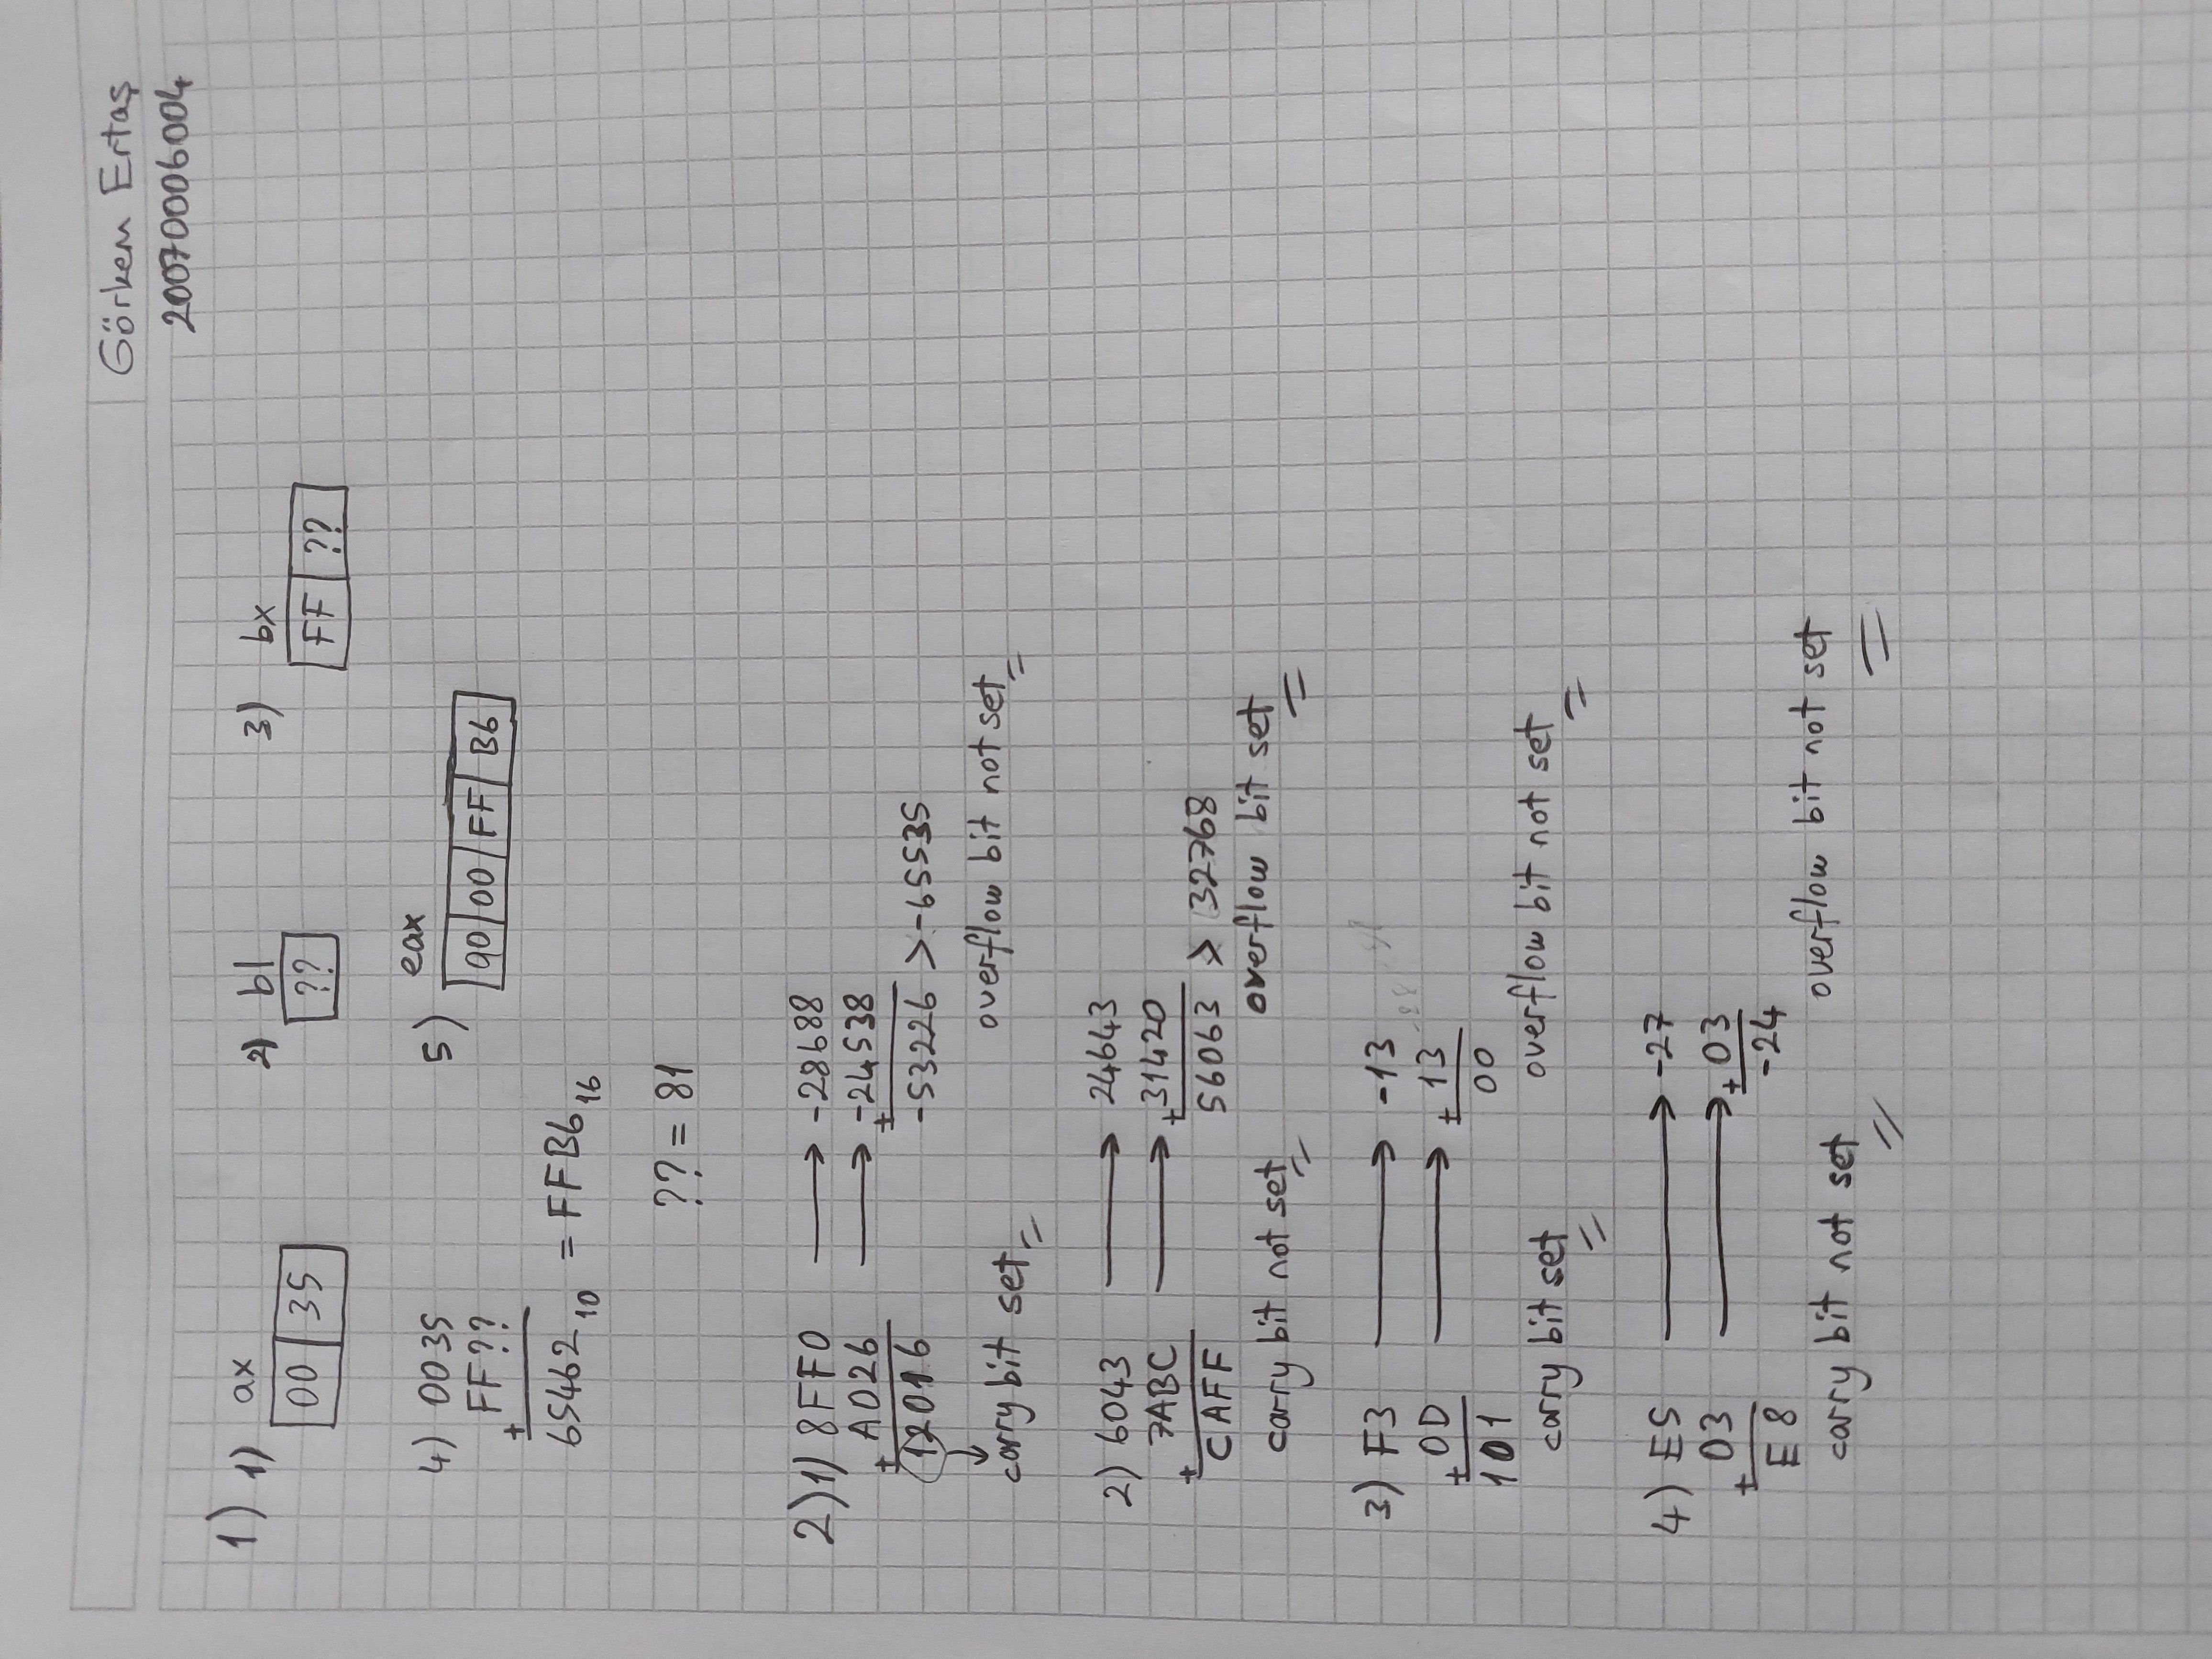 Görkem Ertaş
20070006004
1) 1) ax 2) bl 3) bx
00 35 ?? FF ??
4) 0035 5) eax
FF?? 90 00 FF B6
+
65462 10 = FFB6 16
?? = 81
2) 1) 8FF0 → -28688
+ A026 → + -24538
12016 -53226 > -65535
carry bit set overflow bit not set
2) 6043 → 24643
+ 7ABC → + 31420
CAFF 56063 > 32768
carry bit not set overflow bit set
3) F3 → -13
+ 0D → + 13
101 00
carry bit set overflow bit not set
4) E5 → -27
+ 03 → + 03
E8 -24
carry bit not set overflow bit not set